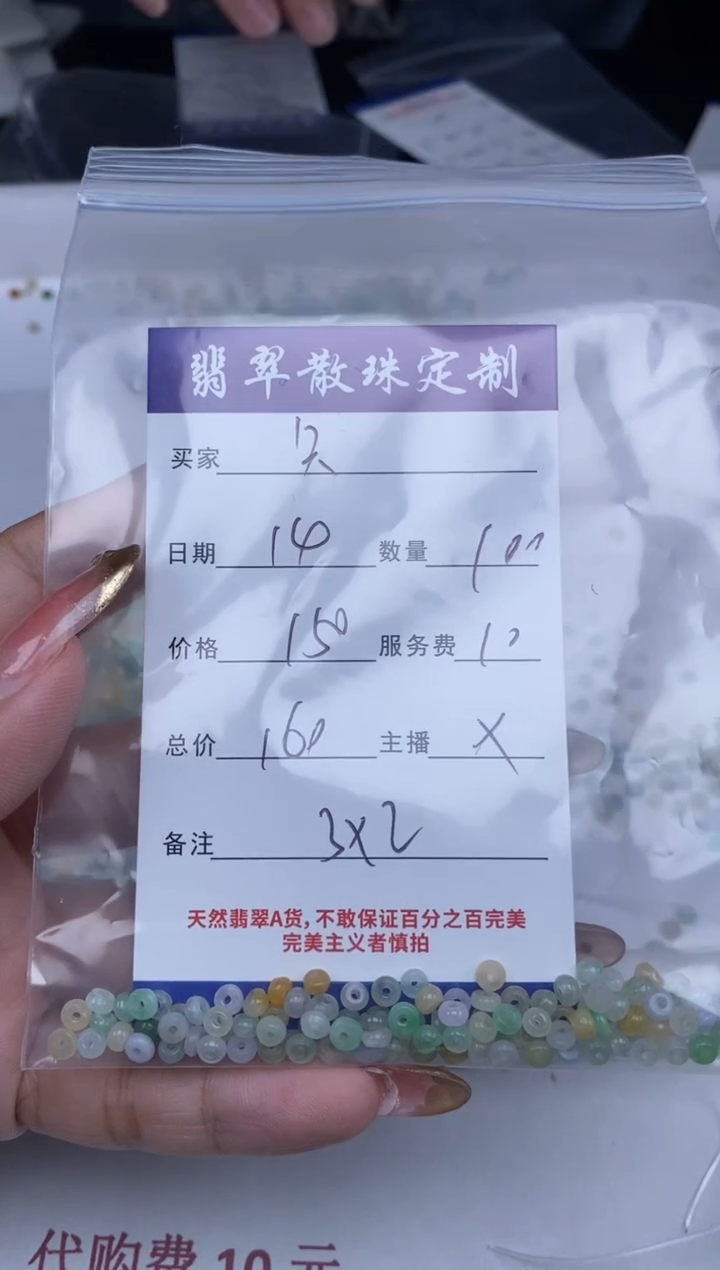 翡翠散珠定制
买家
日期 14 数量 100
价格 150 服务费 10
总价 160 主播 X
备注 3x2
天然翡翠A货,不敢保证百分之百完美
完美主义者慎拍
代购费 10 元